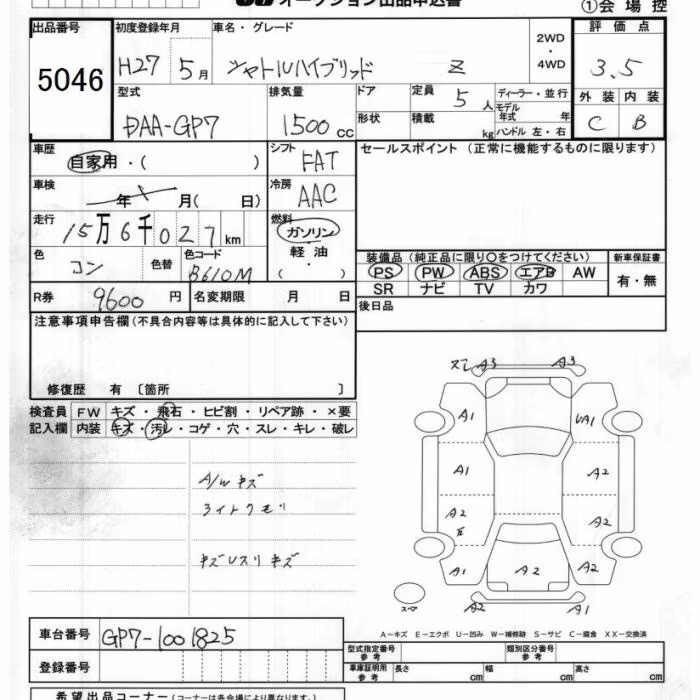 オークション出品申込書
①会場控
出品番号 初度登録年月 車名・グレード 2WD・4WD 評価点
5046 H27 5月 シャトルハイブリッド Z 3.5
型式 排気量 ドア 定員 5人 ディーラー・並行 外装 内装
DAA-GP7 1500cc 形状 積載 kg モデル年式 年 ハンドル 左・右 C B
車歴 自家用・( ) シフト FAT セールスポイント (正常に機能するものに限ります)
車検 年 月( 日) 冷房 AAC
走行 15万6千027km 燃料 ガソリン・軽油・( )
色 コン 色替 色コード B610M 装備品 (純正品に限り○をつけてください) 新車保証書
PS PW ABS エアB AW 有・無
SR ナビ TV カワ
R券 9600円 名変期限 月 日 後日品
注意事項申告欄(不具合内容等は具体的に記入して下さい)
修復歴 有 〔箇所 〕
検査員 FW キズ・飛石・ヒビ割・リペア跡・×要
記入欄 内装 キズ・汚レ・コゲ・穴・スレ・キレ・破レ
A/W キズ
ライトクモリ
スレ A3 A3
A1 UA1
A1 A2
A2 A2
A1 A2 A2
A2 A1
A-キズ E-エクボ U-凹み W-補修跡 S-サビ C-腐食 XX-交換済
車台番号 GP7-1001825
登録番号
型式指定番号 参考 類別区分番号 参考
車庫証明用 参考 長さ cm 幅 cm 高さ cm
希望出品コーナー(コーナーは各会場により異なります)